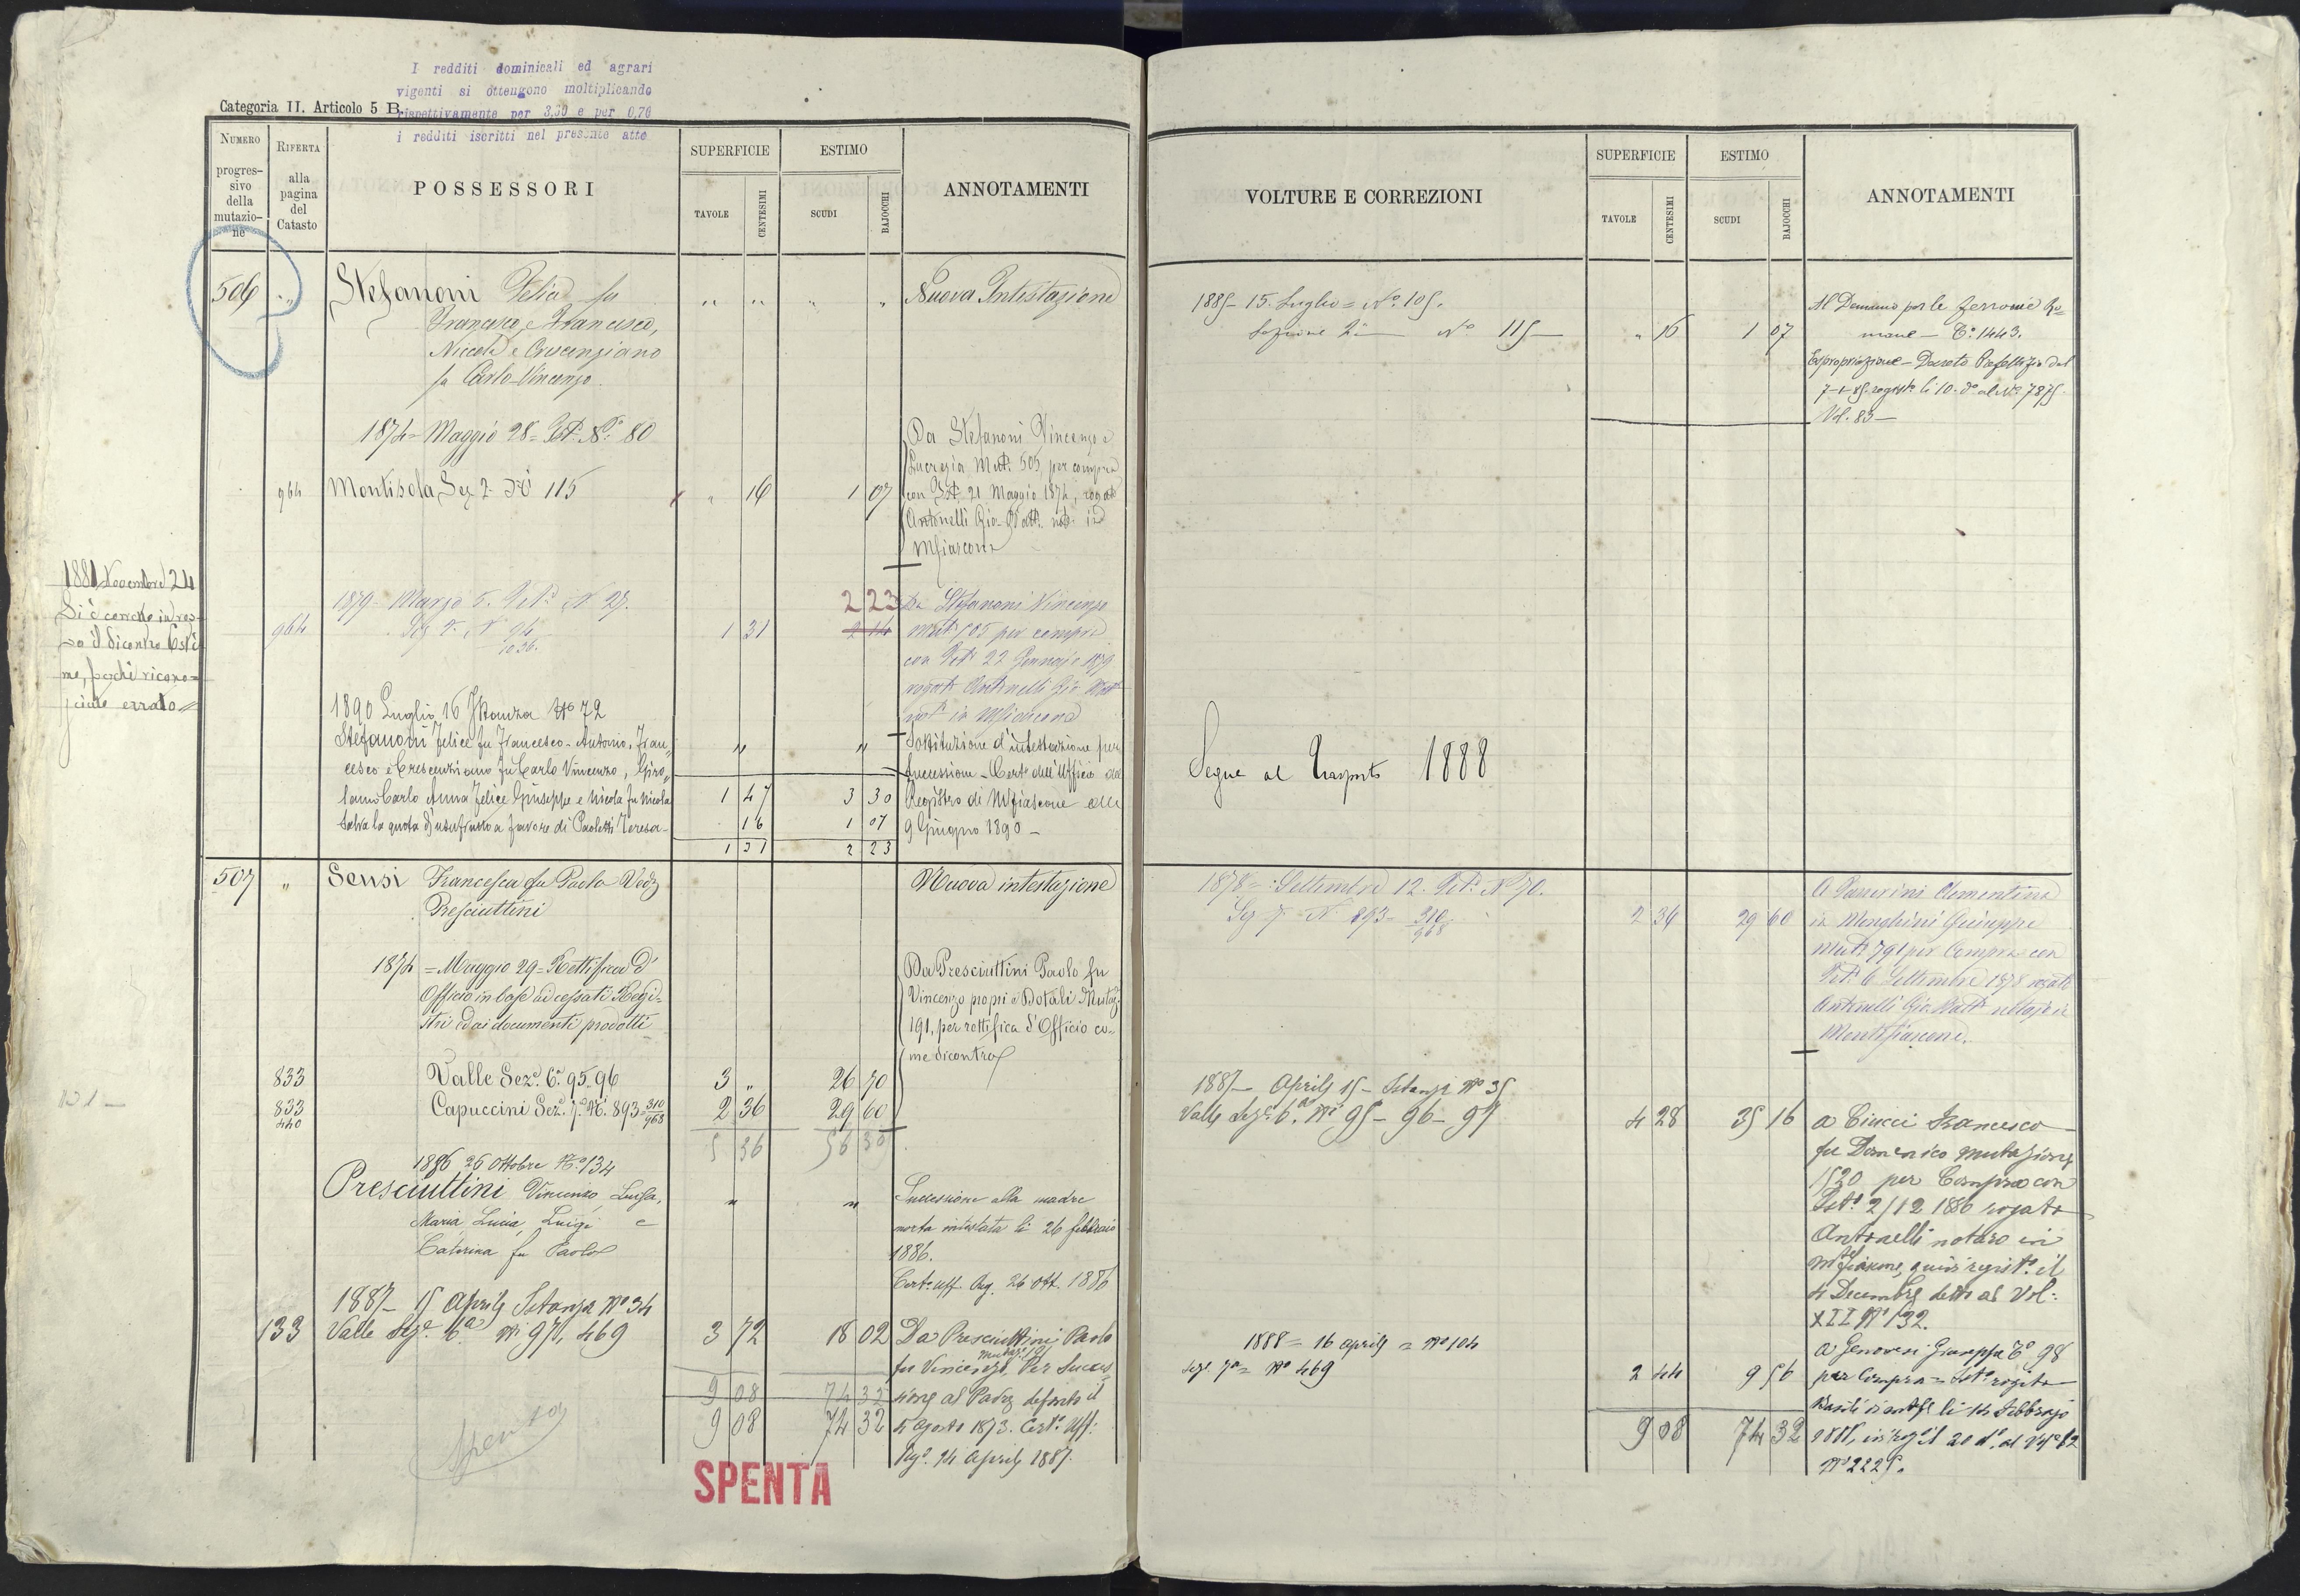 I redditi dominicali ed agrari
vigenti si ottengono moltiplicando
rispettivamente per 3,30 e per 0,76
i redditi iscritti nel presente atto
Categoria II. Articolo 5 B.
NUMERO progres- sivo della mutazio- ne
RIFERTA alla pagina del Catasto
POSSESSORI
SUPERFICIE
TAVOLE
CENTESIMI
ESTIMO
SCUDI
BAJOCCHI
ANNOTAMENTI
506 " Stefanoni Felice fu " " " " Nuova Intestazione
Francesco, e Francesco,
Niccola e Crescenziano
fu Carlo Vincenzo.
1874 = Maggio 28 = Ist. N. 80
Da Stefanoni Vincenzo e
Lucrezia Mut. 505, per compra
964 Montisola Sez. 2. N. 115 " 16 1 07 con Ist. 21 Maggio 1874, rogato
Antonelli Gio. Batt. not. in
Mfiascone
1881 Novembre 24
Si è corretto in ros-
so il dicontro Esti-
mo, perchè ricono-
sciuto errato
1879 - Marzo 5. N. 27. 2 23 Da Stefanoni Vincenzo
964 1 31 2 14 mut. 505 per compra
con Ist. 22 Gennajo 1879
rogato Antonelli Gio. Batt.
not. in Mfiascone
1890 Luglio 16 Istanza No 72
Stefanoni Felice fu Francesco - Antonio, Fran- " " Sostituzione d'intestazione per
cesco e Crescenziano fu Carlo Vincenzo, Giro- successione - Cert. dell'Ufficio del
lamo Carlo Anna Felice Giuseppe e Nicola fu Nicola 1 47 3 30 Registro di Mfiascone delli
salva la quota d'usufrutto a favore di Paoletti Teresa - 16 1 07 9 Giugno 1890 -
1 31 2 23
507 " Sensi Francesca fu Paolo Ved. Nuova intestazione
Presciuttini
1874 = Maggio 29 = Rettifica d'
Officio in base ai cessati Regi-
stri ed ai documenti prodotti
Da Presciuttini Paolo fu
Vincenzo propri e Dotali Mutaz.
191, per rettifica d'Officio co-
me dicontro
833 Valle Sez. 6. 95.96 3 " 26 70
833 440 Capuccini Sez. 7. N. 893 = 310/968 2 36 29 60
5 36 56 30
1886 26 Ottobre No. 134
Presciuttini Vincenzo, Luisa, " " Successione alla madre
Maria, Lucia, Luigi e morta intestata li 26 febbraio
Caterina fu Paolo 1886.
Cert. uff. Reg. 26 ott. 1886
1887 - 15 Aprile Istanza No 34
133 Valle Sez. 6a Ni 97, 469 3 72 18 02 Da Presciuttini Paolo
fu Vincenzo, mutaz. 191 Per succes-
9 08 74 32 sione al Padre defunto il
9 08 74 32 4 agosto 1873. Cert. Uff.
Reg. 14 Aprile 1887.
Spenta
SPENTA
VOLTURE E CORREZIONI
SUPERFICIE
TAVOLE
CENTESIMI
ESTIMO
SCUDI
BAJOCCHI
ANNOTAMENTI
1885 - 15. Luglio = No. 105. Al Demanio per le ferrovie Ro-
Sezione 2a - No 115 - " 16 1 07 mane - C. 1443.
Espropriazione - Decreto Prefettizio del
Vol. 83 -
Segue al Trasporto 1888
1878 = Settembre 12. N. 70.
Sez. 7. N. 893 = 310/968 2 36 29 60
in Menghini Giuseppe
Mut. 791 per Compra con
Ist. 6 Settembre 1878 rogato
Antonelli Gio. Batt. notajo in
Montefiascone.
1887 - Aprile 15 - Istanza No 35
Valle Sez. 6a. Ni 95 - 96 - 97 4 28 35 16 a Ciucci Francesco
fu Domenico mutazione
1520 per Compra con
Ist. 2/12 1886 rogato
Antonelli notaro in
Mtefiascone, quivi regist. il
4 Decembre detto al Vol.
XII No 132.
1888 = 16 Aprile = No 104 a Genovesi Giuseppe C. 98
Sez. 7a = No 469 2 44 9 56 per Compra = Ist. rogito
li 14 Febbrajo
9 08 74 32 1888, 20 d. al
No 2225.